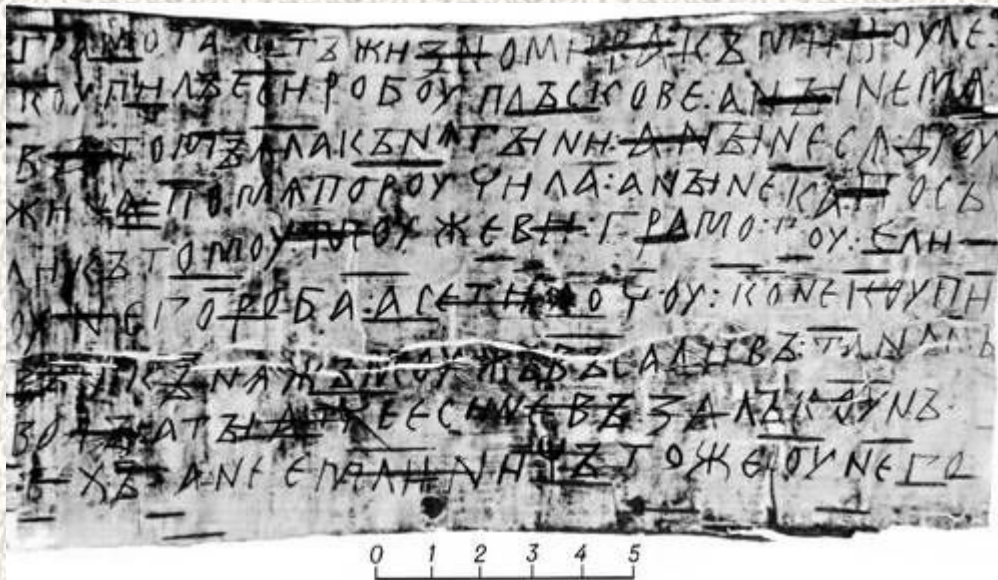 ГРАМОТА:ОТЪЖИЗНОМИРА:КЪМИКОУЛЕ:
КОУПИЛЪЕСИ:РОБОУ:ПЛЪСКОВЕ:АНЫНЕМѦ:
ВЪТОМЪ:ѦЛАКЪНѦГЫНИ:АНЫНЕСѦДРОУ
ЖИНА:ПОМѦПОРОУЧИЛА:АНЫНЕКА:ПОСЪ
ЛИКЪТОМОУ:МОУЖЕВИ:ГРАМОТОУ:ЕЛИ
ОУНЕГОРОБА:АСЕТИХОЧОУ:КОНЕКОУПИ
ВЪ:ИКЪНѦЖЪМОУЖЪВЪСАДИВЪ:ТАНАСЪ
ВОДЫ:АТЫАТЧЕЕСИНЕВЪЗАЛЪКОУНЪ:
ТЕХЪ:АНЕЕМЛИ:НИЧЪТОЖЕОУНЕГО:
0 1 2 3 4 5